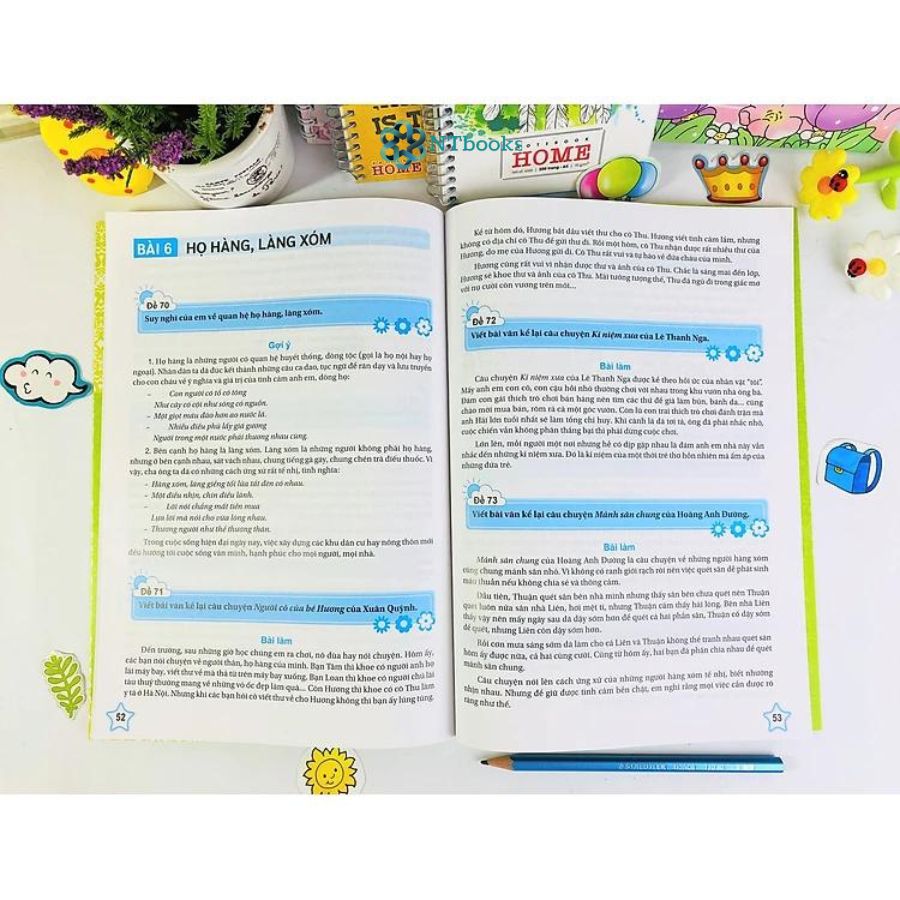 NTbooks
IS T
HOME
NOTEBOOK
HOME
BÀI 6 HỌ HÀNG, LÀNG XÓM
Đề 70
Suy nghĩ của em về quan hệ họ hàng, làng xóm.
Gợi ý
1. Họ hàng là những người có quan hệ huyết thống, dòng tộc (gọi là họ nội hay họ
ngoại). Nhân dân ta đã đúc kết thành những câu ca dao, tục ngữ để răn dạy và lưu truyền
cho con cháu về ý nghĩa và giá trị của tình cảm anh em, dòng họ:
– Con người có tổ có tông
Như cây có cội như sông có nguồn.
– Một giọt máu đào hơn ao nước lã.
– Nhiễu điều phủ lấy giá gương
Người trong một nước phải thương nhau cùng.
2. Bên cạnh họ hàng là làng xóm. Làng xóm là những người không phải họ hàng,
nhưng ở bên cạnh nhau, sát vách nhau, chung tiếng gà gáy, chung chén trà điếu thuốc. Vì
vậy, cha ông ta đã có những cách ứng xử rất tế nhị, tình nghĩa:
– Hàng xóm, láng giềng tối lửa tắt đèn có nhau.
– Một điều nhịn, chín điều lành.
– Lời nói chẳng mất tiền mua
Lựa lời mà nói cho vừa lòng nhau.
– Thương người như thể thương thân.
Trong cuộc sống hiện đại ngày nay, việc xây dựng các khu dân cư hay nông thôn mới
đều hướng tới cuộc sống văn minh, hạnh phúc cho mọi người, mọi nhà.
Đề 71
Viết bài văn kể lại câu chuyện Người cô của bé Hương của Xuân Quỳnh.
Bài làm
Đến trường, sau những giờ học chúng em ra chơi, nô đùa hay nói chuyện. Hôm ấy,
các bạn nói chuyện về người thân, họ hàng của mình. Bạn Tâm thì khoe có người anh họ
lái máy bay, viết thư về mà thả từ trên máy bay xuống. Bạn Loan thì khoe có người chú lái
tàu thuỷ thường mang về những vỏ ốc đẹp làm quà... Còn Hương thì khoe có cô Thu làm
y tá ở Hà Nội. Nhưng khi các bạn hỏi cô viết thư về cho Hương không thì bạn ấy lúng túng.
52
Kể từ hôm đó, Hương bắt đầu viết thư cho cô Thu. Hương viết tình cảm lắm, nhưng
không có địa chỉ cô Thu để gửi thư đi. Rồi một hôm, cô Thu nhận được rất nhiều thư của
Hương, do mẹ của Hương gửi đi. Cô Thu rất vui và tự hào về đứa cháu của mình.
Hương cũng rất vui vì nhận được thư và ảnh của cô Thu. Chắc là sáng mai đến lớp,
Hương sẽ khoe thư và ảnh của cô Thu. Mải tưởng tượng thế, Thu đã ngủ đi trong giấc mơ
với nụ cười còn vương trên môi...
Đề 72
Viết bài văn kể lại câu chuyện Kỉ niệm xưa của Lê Thanh Nga.
Bài làm
Câu chuyện Kỉ niệm xưa của Lê Thanh Nga được kể theo hồi ức của nhân vật "tôi".
Mấy anh em con cô, con cậu hồi nhỏ thường chơi với nhau trong khu vườn nhà ông bà.
Đám con gái thích trò chơi bán hàng nên tìm các thứ để giả làm bún, bánh đa... cũng
chào mời mua bán, rôm rả cả một góc vườn. Còn lũ con trai thích trò chơi đánh trận mà
anh Hải lớn tuổi nhất sẽ làm tổng chỉ huy. Khi cảnh lá đã tơi tả, ông đã phải nhắc nhở,
cuộc chiến vẫn không phân thắng bại thì phải dừng cuộc chơi.
Lớn lên, mỗi người một nơi nhưng hễ có dịp gặp nhau là đám anh em nhà này vẫn
nhắc đến những kỉ niệm xưa. Đó là kỉ niệm của một thời trẻ thơ hồn nhiên mà ấm áp của
những đứa trẻ.
Đề 73
Viết bài văn kể lại câu chuyện Mảnh sân chung của Hoàng Anh Đường.
Bài làm
Mảnh sân chung của Hoàng Anh Đường là câu chuyện về những người hàng xóm
cùng chung mảnh sân nhỏ. Vì không có ranh giới rạch ròi nên việc quét sân dễ phát sinh
mâu thuẫn nếu không chia sẻ và thông cảm.
Đầu tiên, Thuận quét sân bên nhà mình nhưng thấy sân bên chưa quét nên Thuận
quét luôn nửa sân nhà Liên, hơi mệt tí, nhưng Thuận cảm thấy hài lòng. Bên nhà Liên
thấy vậy nên mấy ngày sau đã dậy sớm hơn để quét cả hai phần sân, Thuận có dậy sớm
để quét, nhưng Liên còn dậy sớm hơn.
Rồi cơn mưa sáng sớm đã làm cho cả Liên và Thuận không thể tranh nhau quét sân
hôm ấy được nữa, cả hai cùng cười. Cũng từ hôm ấy, hai bạn đã phân chia nhau để quét
mảnh sân chung.
Câu chuyện nói lên cách ứng xử của những người hàng xóm tế nhị, biết nhường
nhịn nhau. Nhưng để giữ được tình cảm bền chặt, em nghĩ rằng mọi việc cần được rõ
ràng như thế.
53
STAEDTLER